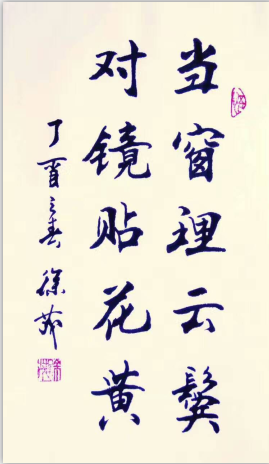 当窗理云鬓
对镜贴花黄
丁酉之春 徐